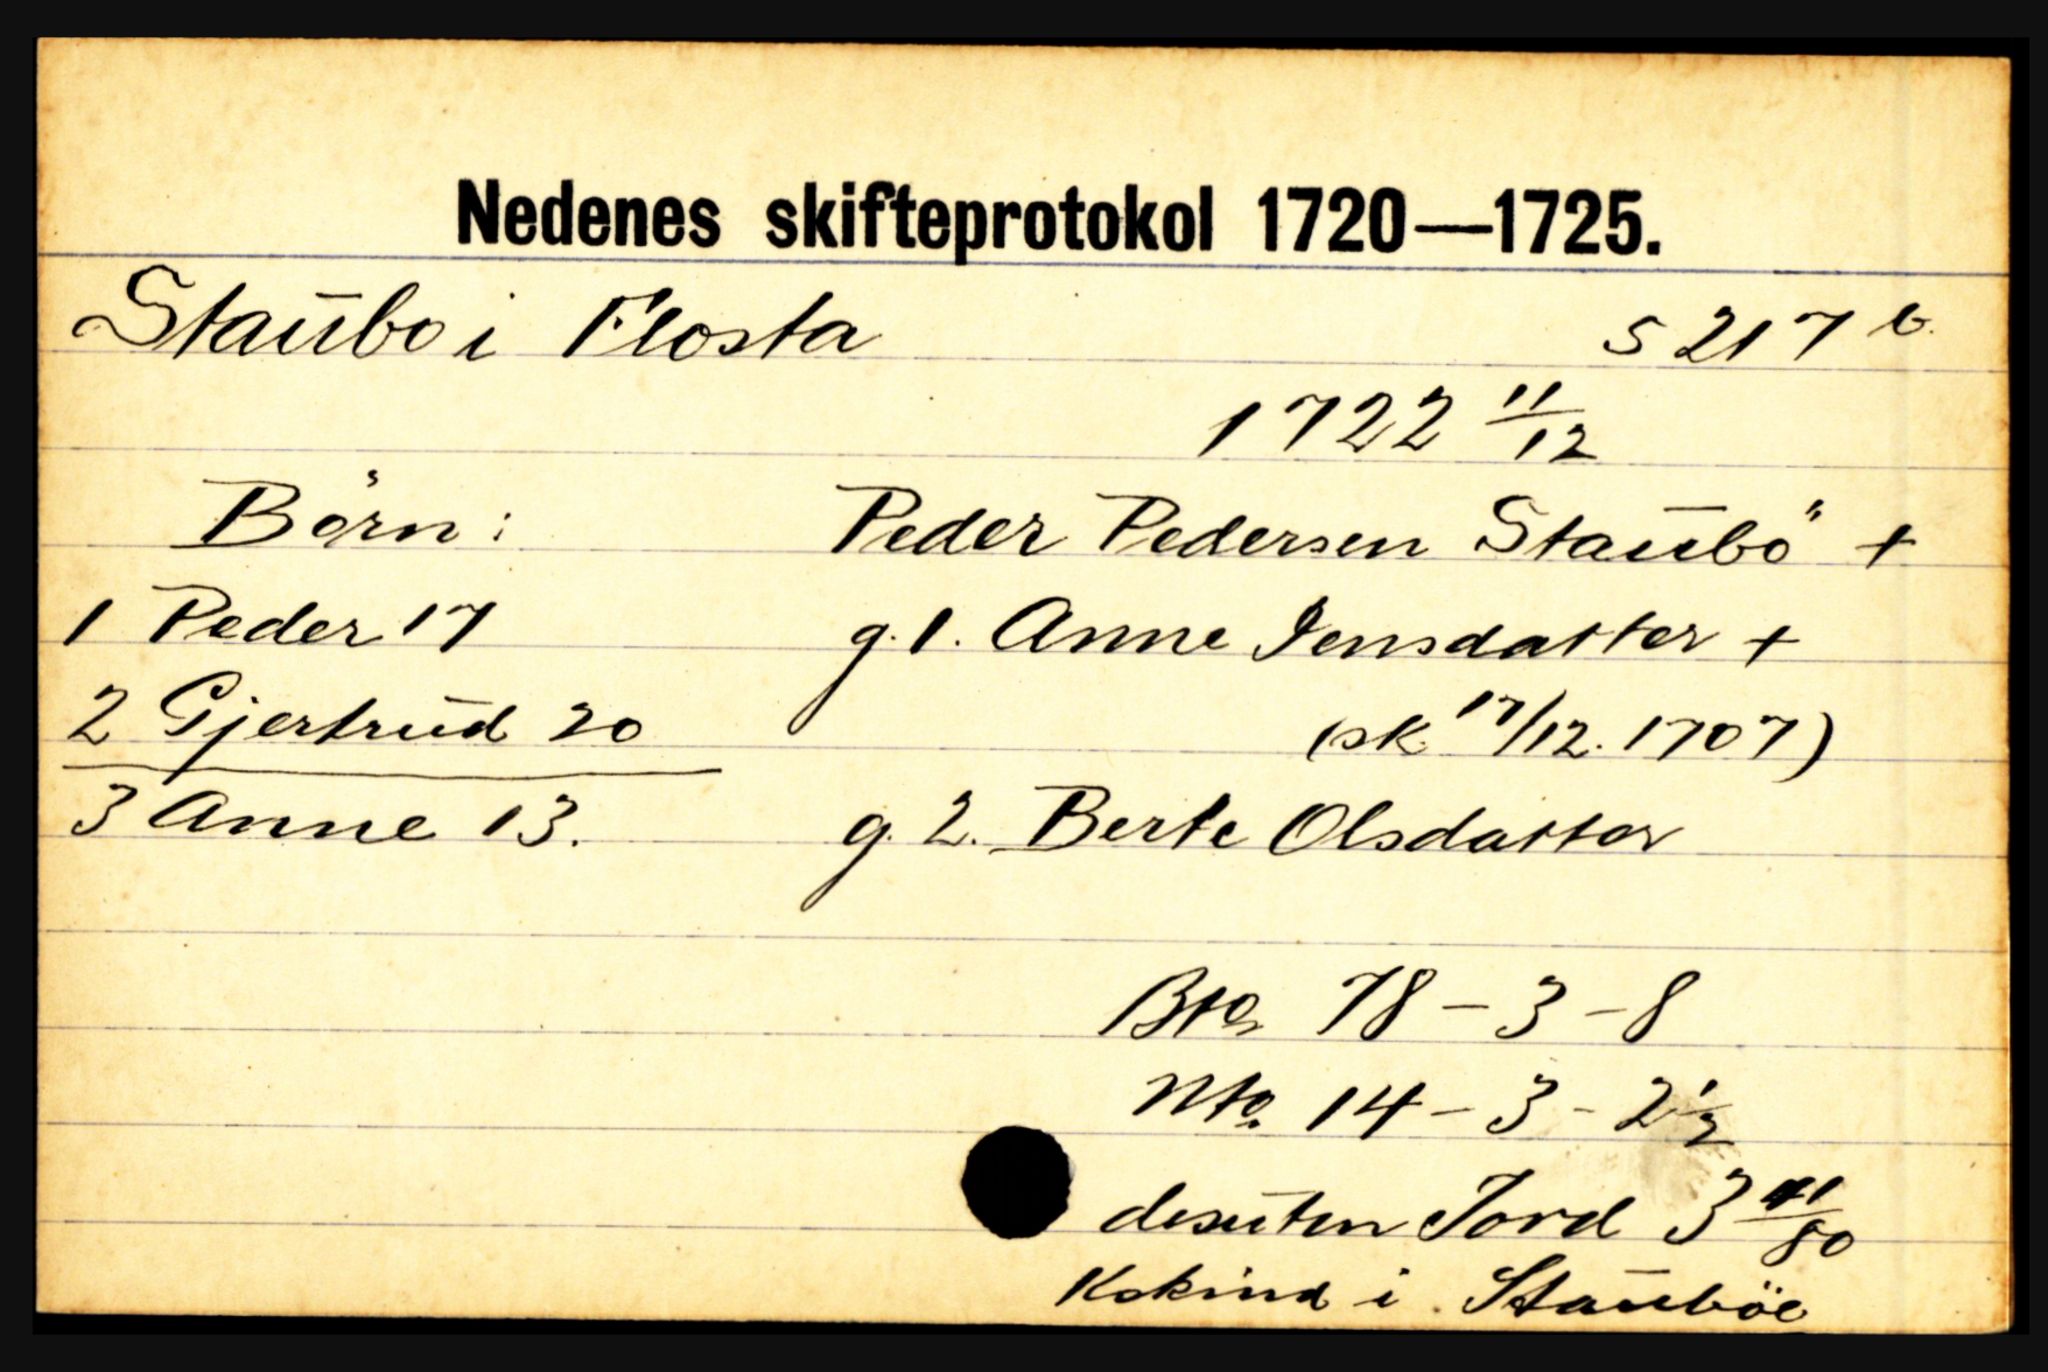 Nedenes skifteprotokol 1720—1725.
Staubo i Flosta S 217 b.
1722 11/12
Börn: Peder Pedersen Staubö +
1 Peder 17 g. 1. Anne Jensdatter +
2 Gjertrud 20 (sk. 17/12. 1707)
3 Anne 13. g. 2. Berte Olsdatter
Bto. 78 - 3 - 8
Nto. 14 - 3 - 2 1/2
desuten Jord 3 41/80
Kskind i Stauböe